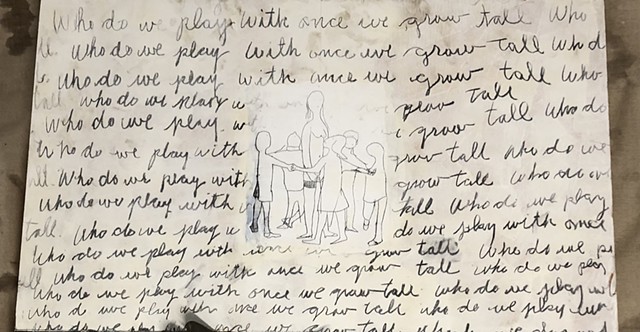 Who do we play with once we grow tall Who
ll. Who do we play with once we grow tall Who d
who do we play with once we grow tall who
tall who do we play w grow tall
Who do we play we i grow tall who do
Who do we play with grow tall who do we
ll. Who do we play with grow tall who do we
who do we play with u tall Who do we play
tall. who do we play w do we play with once
Who do we play with once we grow tall Who do we
ll who do we play with once we grow tall who do we play
who do we play with once we grow tall who do we play
who do we play with once we grow tall who do we play
who do we play once we grow tall who do we